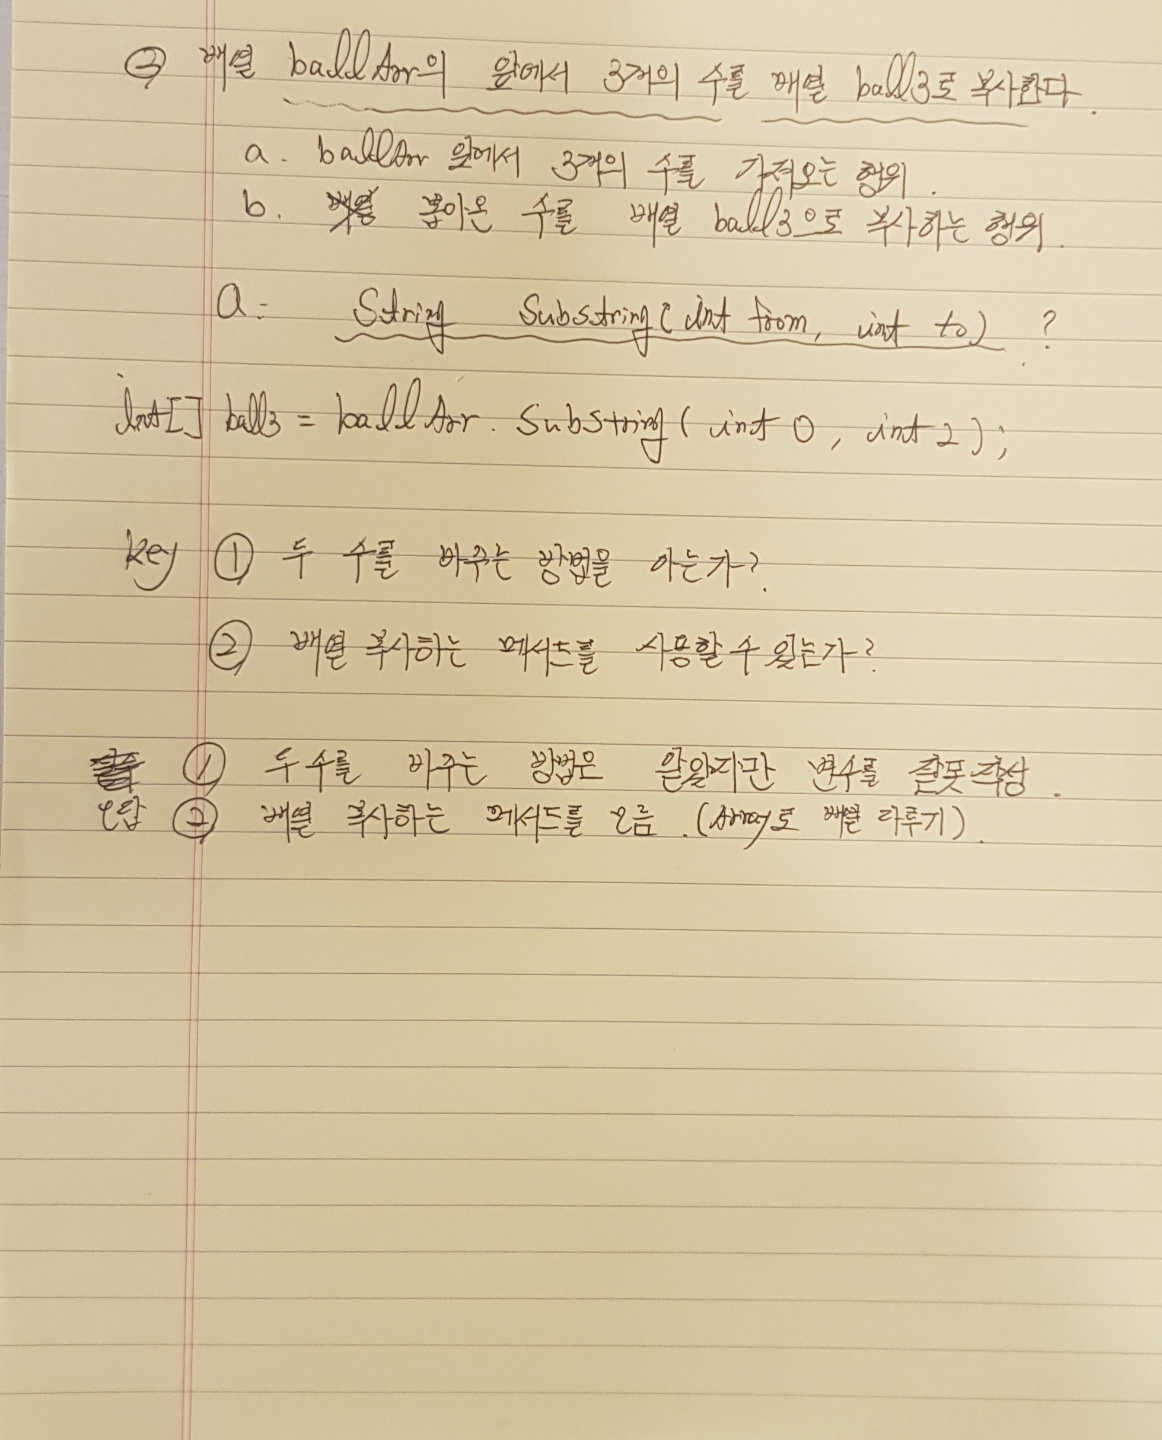 ② 배열 ballArr의 앞에서 3개의 수를 배열 ball3로 복사한다.
a. ballArr 앞에서 3개의 수를 가져오는 행위.
b. 뽑아온 수를 배열 ball3으로 복사하는 행위.
a: String Substring(int from, int to) ?
int[] ball3 = ballArr.Substring(int 0, int 2);
key ① 두 수를 바꾸는 방법을 아는가?
② 배열 복사하는 메서드를 사용할 수 있는가?
① 두 수를 바꾸는 방법은 알았지만 변수를 잘못 작성.
오답 ② 배열 복사하는 메서드를 모름. (Array로 배열 다루기).